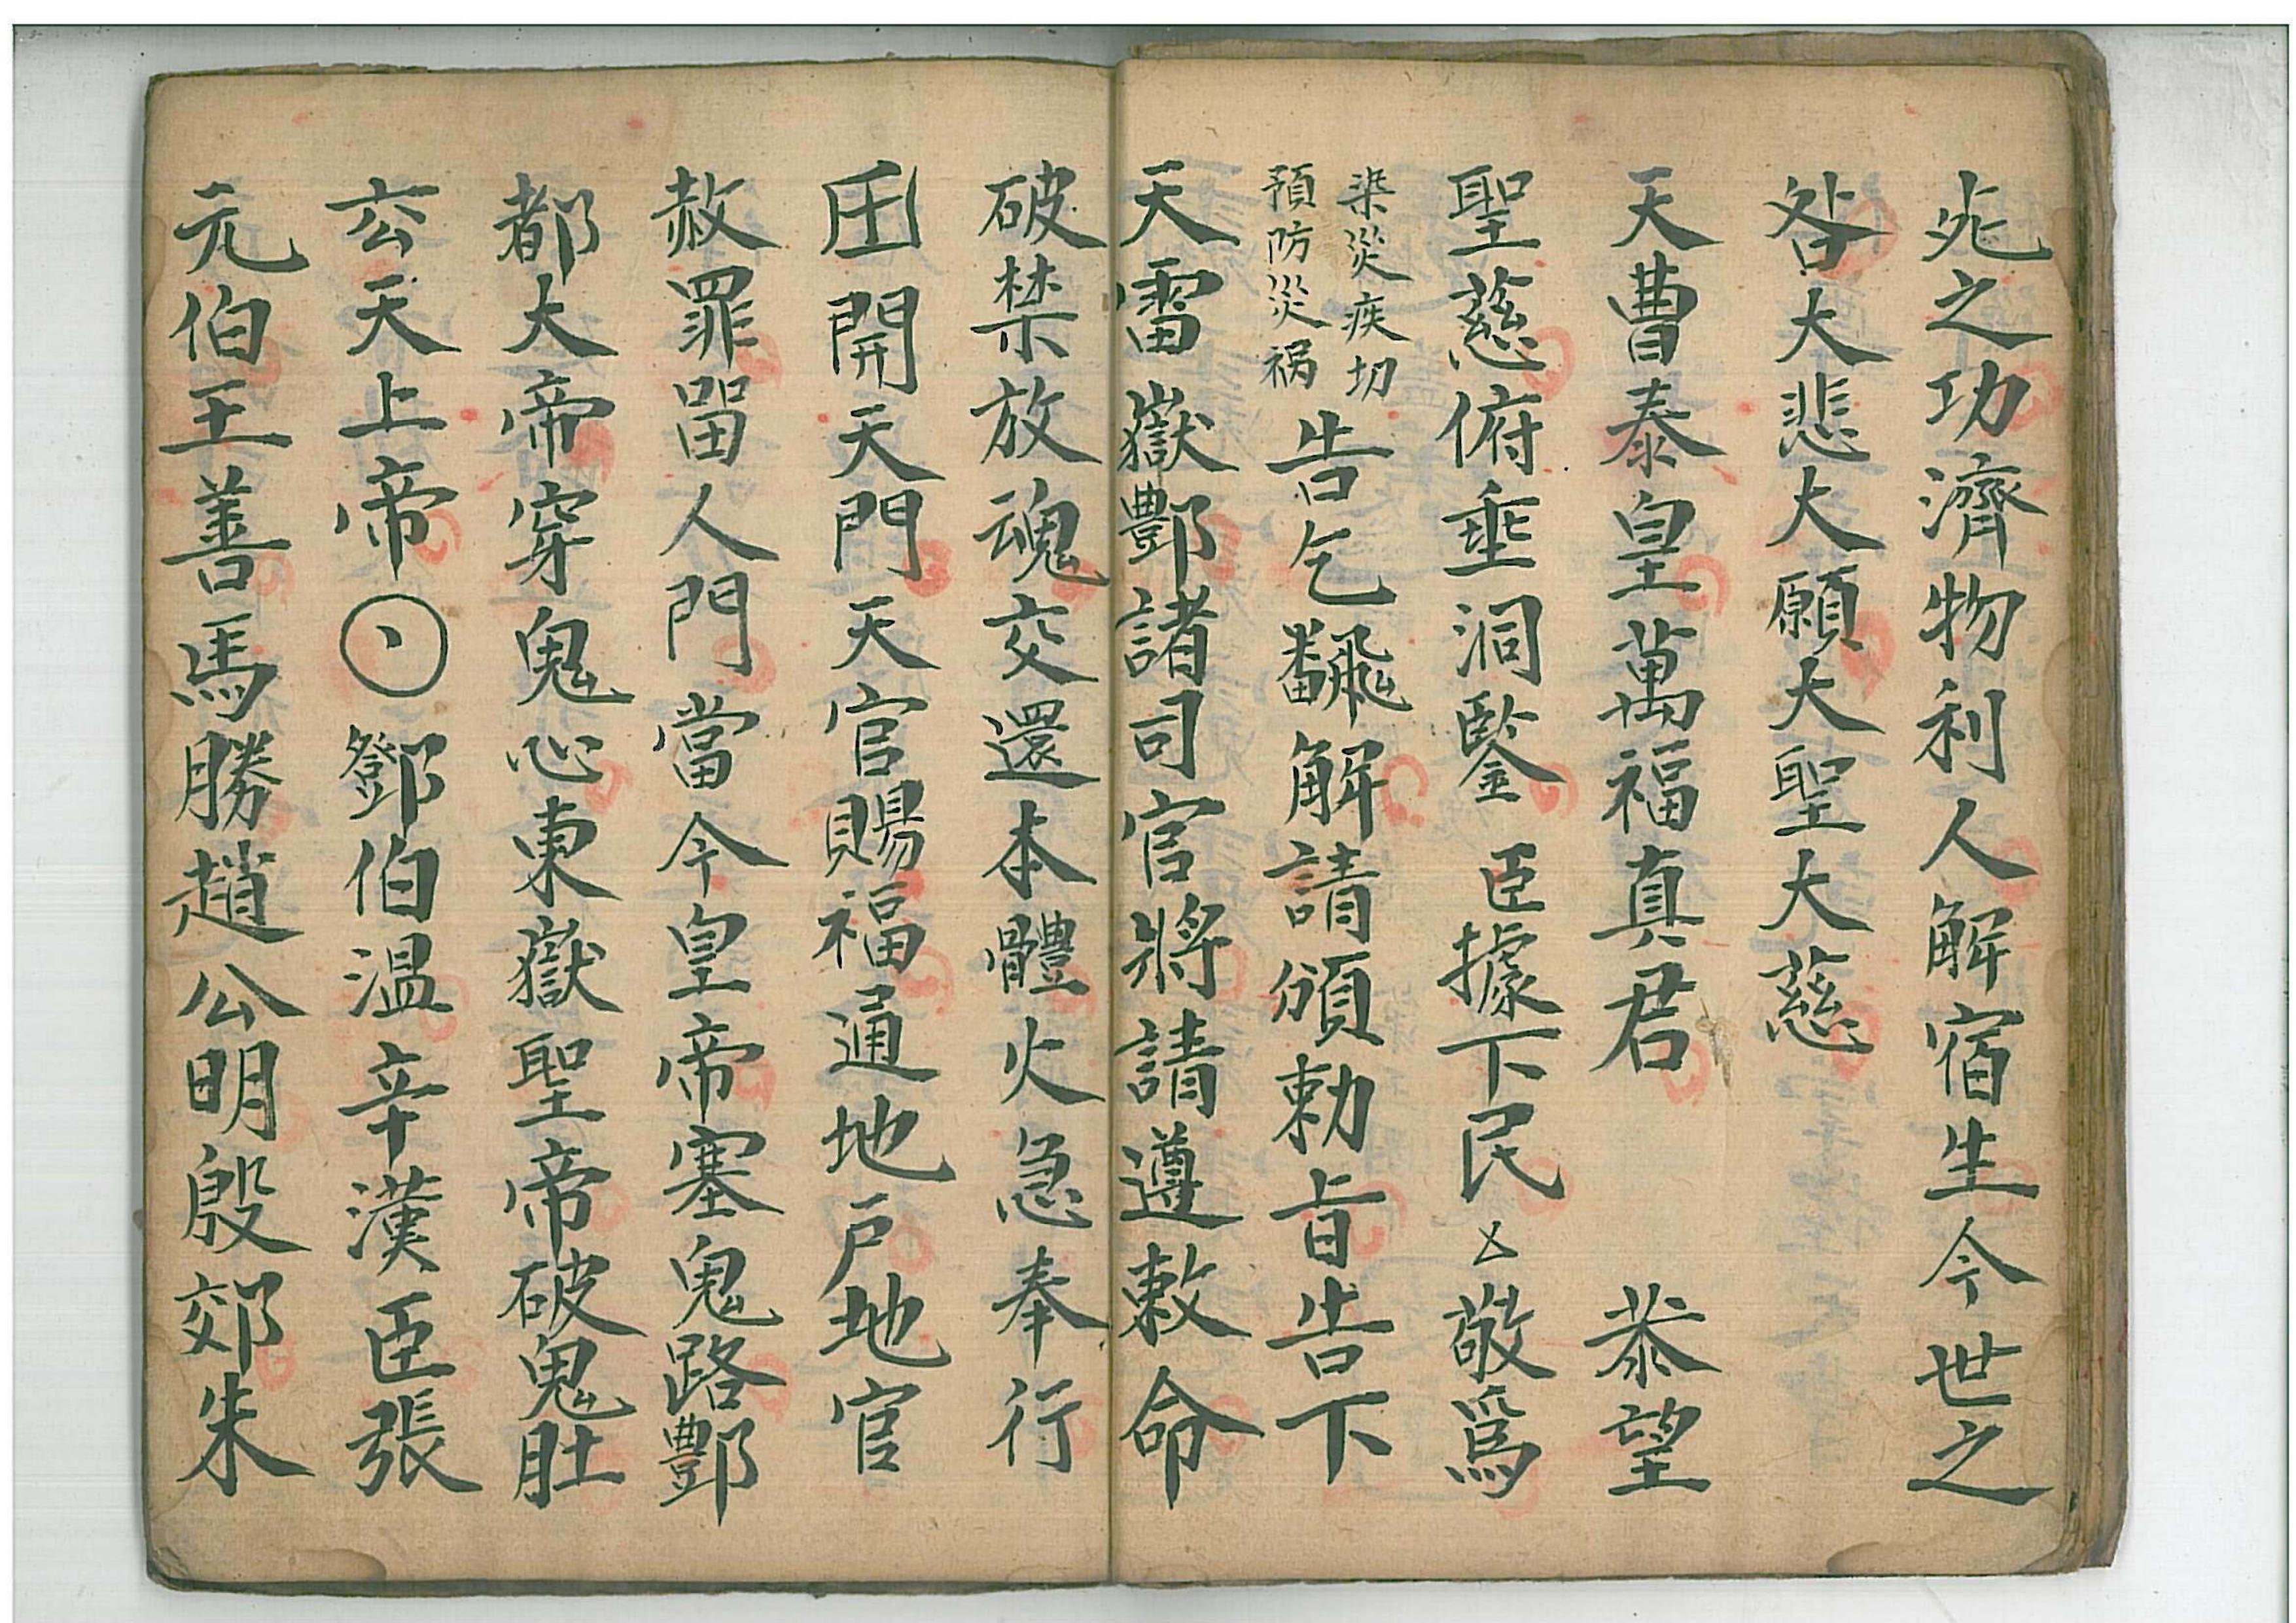 兆之功濟物利人解宿生今世之
咎大悲大願大聖大慈
天曹泰皇萬福真君 恭望
聖慈俯垂洞鋻臣據下民厶敬爲
染災疾切
預防災禍
告乞飜解請頒勅旨告下
天雷嶽酆諸司官將請遵敕命
破禁放魂交還本體火急奉行
開天門天官賜福通地户地官
赦罪畱人門當今皇帝塞鬼路酆
都大帝穿鬼心東嶽聖帝破鬼肚
玄天上帝鄧伯温辛漢臣張
元伯王善馬勝趙公明殷郊朱